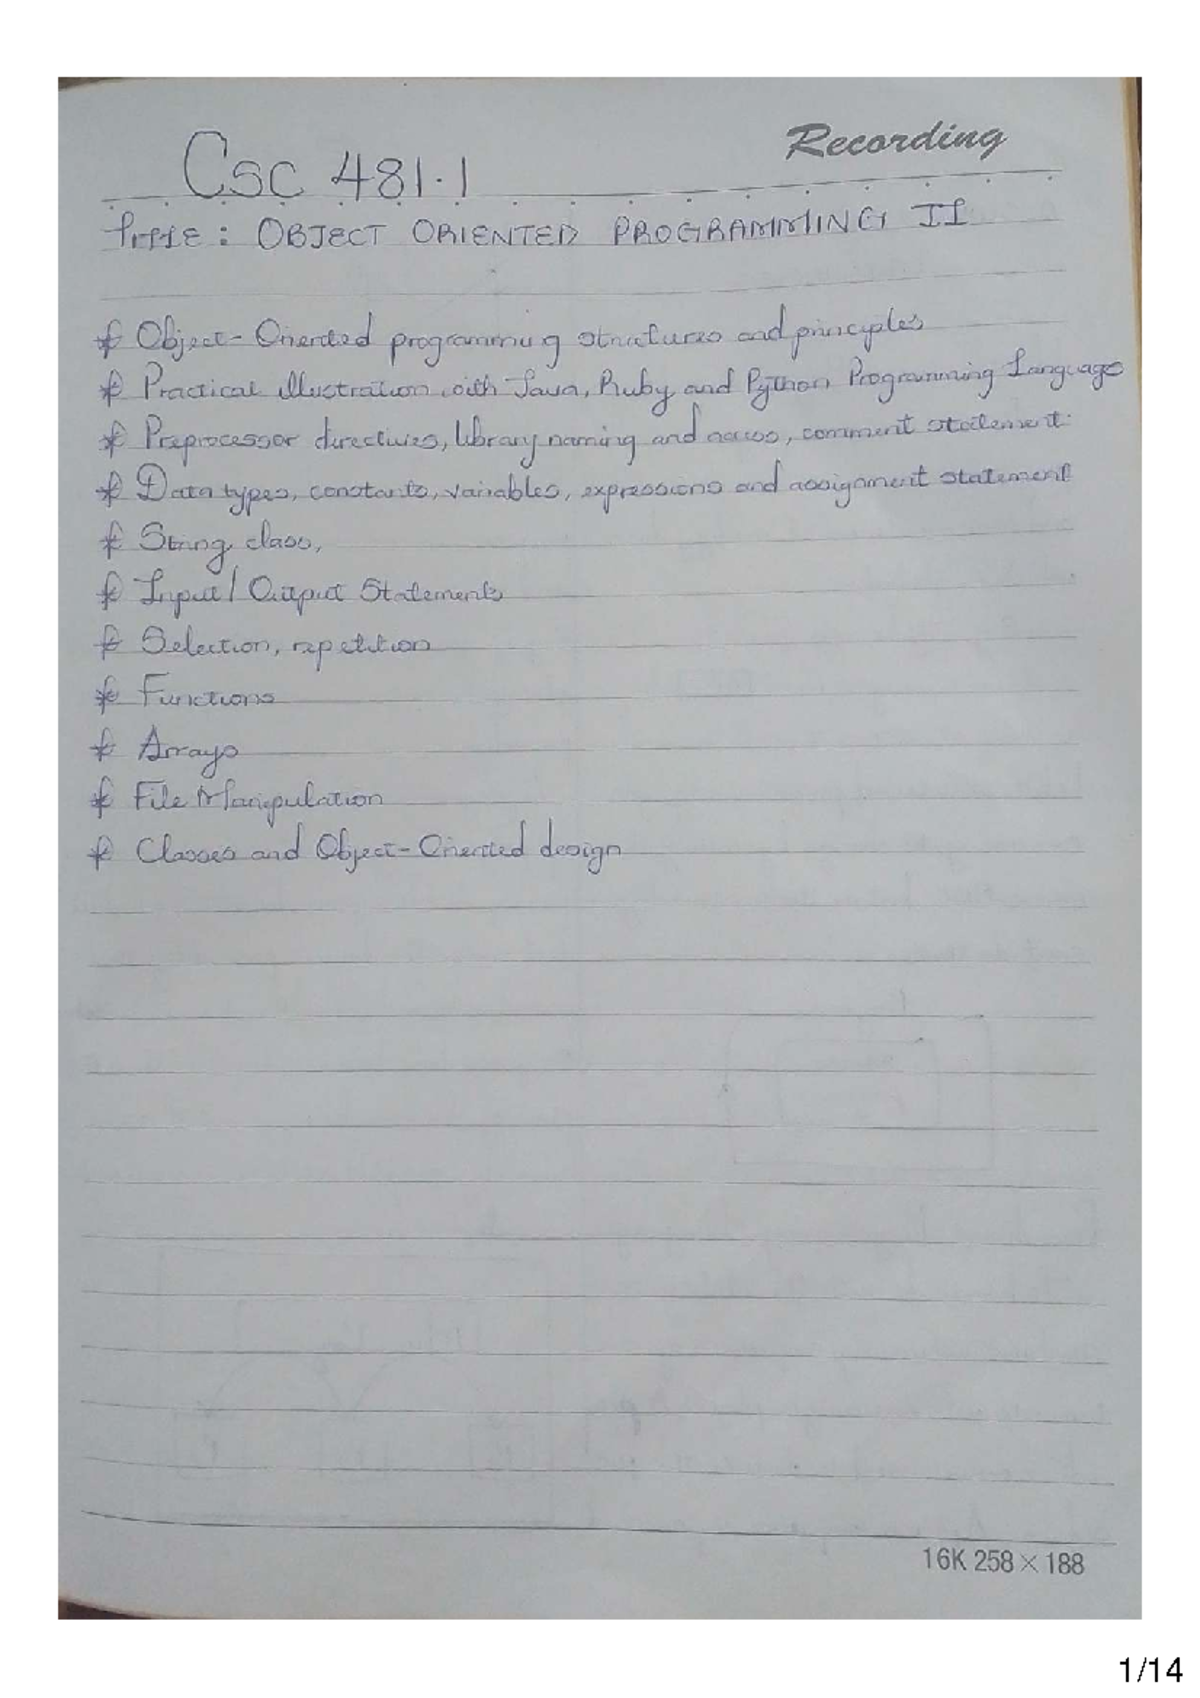 Recording
CSC 481.1
TITLE : OBJECT ORIENTED PROGRAMMING II
* Object-Oriented programming structures and principles
* Practical illustration with Java, Ruby and Python Programming Language
* Preprocessor directives, library naming and access, comment statement.
* Data types, constants, variables, expressions and assignment statement
* String class,
* Input / Output Statements
* Selection, repetition
* Functions
* Arrays
* File Manipulation
* Classes and Object-Oriented design
16K 258×188
1/14